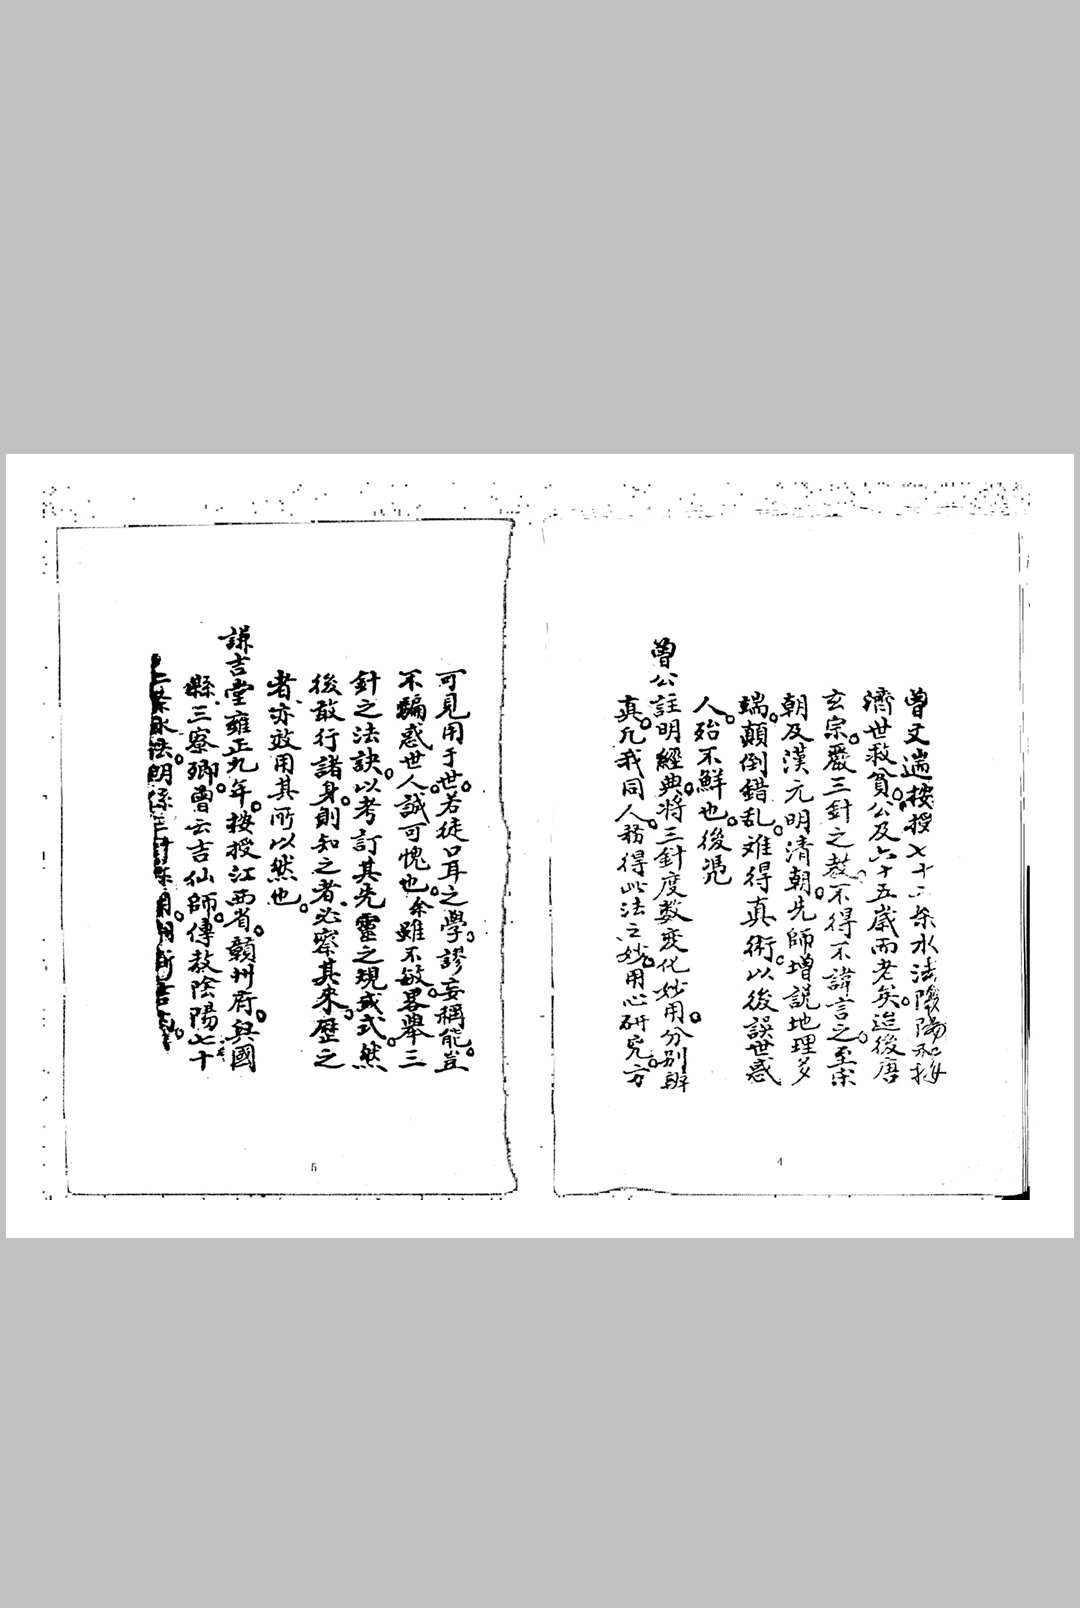 曾文遄按授七十二条水法陰陽
濟世救貧。公及六十五歲而老矣。迨後唐
玄宗。嚴三針之教。不得不諱言之。至宋
朝及漢元明清朝先師增説地理多
端。顛倒錯乱。难得真術。以後誤世惑
人。殆不鮮也。後凭
曾公註明經典。將三針度数变化妙用。分别辨
真。凢我同人。務得此法之妙。用心研究。方
4
可見用于世。若徒口耳之學。謬妄稱能。豈
不騙惑世人。誠可愧也。余雖不敏。畧舉三
針之法訣。以考訂其先靈之規或式。然
後敢行諸身。則知之者。必察其来歷之
者。亦效用其所以然也。
謙吉堂雍正九年。按授江西省。贛州府。興國
縣。三寮鄉。曾云吉仙師。傳教陰陽七十
二条水法。明
5